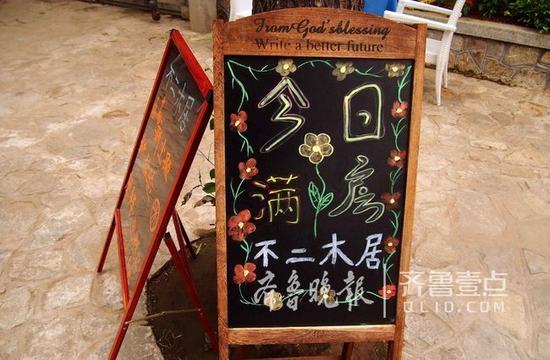 From God'sblessing
Write a better future
今日
满房
不二木居
齐鲁晚報
不二木居
齐鲁壹点
QLID.COM